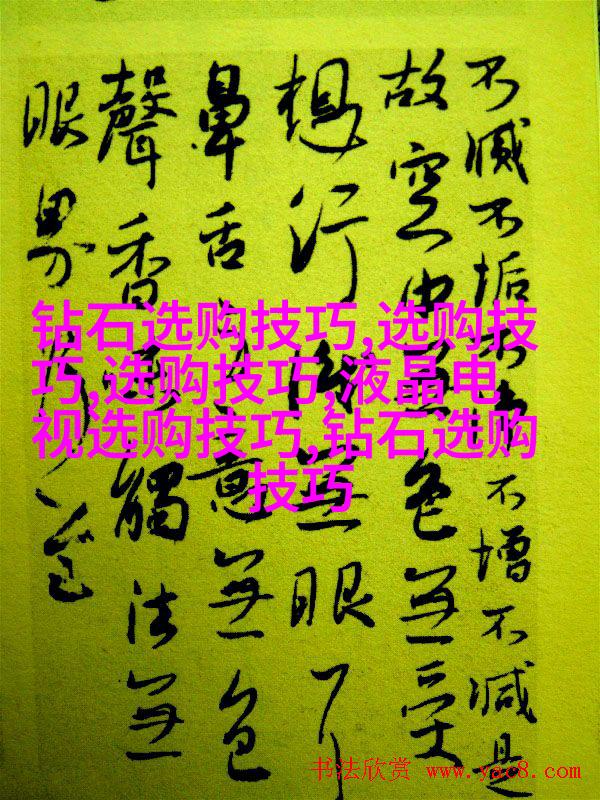 不滅不垢不淨不增不減是
故空中無色無受
想行識無眼耳
鼻舌身意無色
聲香味觸法無
眼界
钻石选购技巧,选购技
巧,选购技巧,液晶电
视选购技巧,钻石选购
技巧
书法欣赏 www.yac8.com